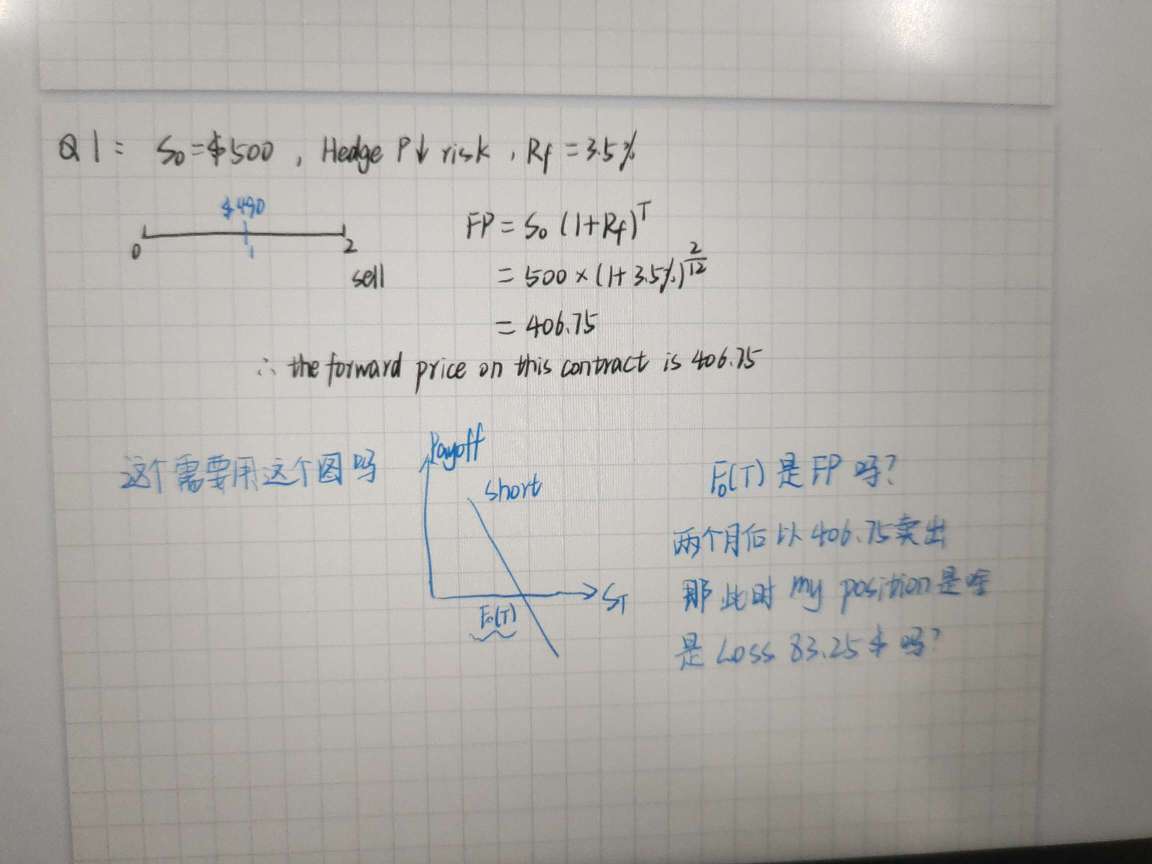 Q1: S₀=$500, Hedge P↓ risk, Rf=3.5%
$490
0 1 2
sell
FP = S₀ (1+Rf)^T
= 500 × (1+3.5%)^2/12
= 406.75
∴ the forward price on this contract is 406.75
这个需要用这个图吗
Payoff
short
F₀(T)
S_T
F₀(T) 是FP吗?
两个月后以406.75卖出
那此时 my position是啥
是 Loss 83.25$吗?